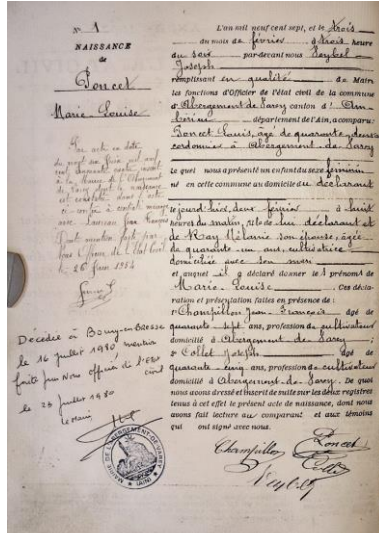 N° 1
NAISSANCE
de
Poncet
Marie-Louise
Par acte en date
du vingt six Juin mil neuf
cent cinquante
à la Mairie de l'Abergement
de Varey dont la naissance
est constatée dont l'acte
ci-contre a contracté mariage
avec François
Dont mention faite par
Nous Officier de l'Etat Civil
le 26 Juin 1954
Décédée à Bourg-en-Bresse
le 16 juillet 1980 mention
faite par Nous officier de l'Etat
civil
le 23 juillet 1980
Le Maire,
MAIRIE DE L'ABERGEMENT-DE-VAREY
(AIN)
L'an mil neuf cent sept, et le trois
du mois de février, à trois heure
du soir par-devant nous Peysel
Joseph
remplissant en qualité de Maire
les fonctions d'Officier de l'état civil de la commune
d'Abergement de Varey canton d'Am
bérieu département de l'Ain, a comparu:
Poncet Louis, âgé de quarante-deux ans
cordonnier à Abergement-de-Varey
Lequel nous a présenté un enfant du sexe féminin
né en cette commune au domicile du déclarant
ce jourd'hier, deux février à huit
heures du matin, née de lui déclarant et
de Ray Mélanie son épouse, âgée
de quarante un ans, cultivatrice
domiciliée avec son mari
et auquel il a déclaré donner le s prénom s de
Marie-Louise. Ces décla-
ration et présentation faites en présence de:
1° Champillon Jean-François âgé de
quarante sept ans, profession de cultivateur
domicilié à Abergement-de-Varey
2° Collet Joseph, âgé de
quarante-cinq ans, profession de cultivateur
domicilié à Abergement-de-Varey. De quoi
nous avons dressé et inscrit de suite sur les deux registres
tenus à cet effet le présent acte de naissance, dont nous
avons fait lecture au comparant et aux témoins
qui ont signé avec nous.
Champillon Poncet
Collet